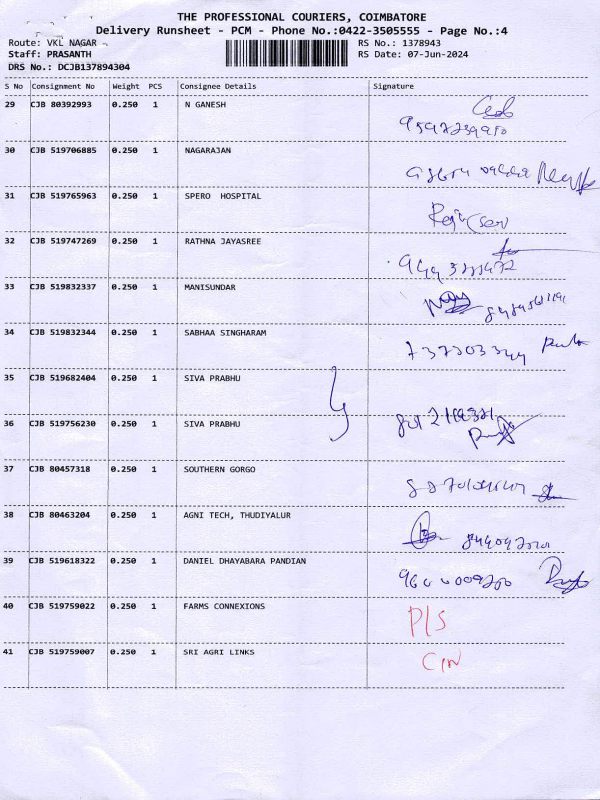 THE PROFESSIONAL COURIERS, COIMBATORE
Delivery Runsheet - PCM - Phone No.:0422-3505555 - Page No.:4
Route: VKL NAGAR - RS No.: 1378943
Staff: PRASANTH RS Date: 07-Jun-2024
DRS No.: DCJB137894304
S No Consignment No Weight PCS Consignee Details Signature
29 CJB 80392993 0.250 1 N GANESH
30 CJB 519706885 0.250 1 NAGARAJAN
31 CJB 519765963 0.250 1 SPERO HOSPITAL
32 CJB 519747269 0.250 1 RATHNA JAYASREE
33 CJB 519832337 0.250 1 MANISUNDAR
34 CJB 519832344 0.250 1 SABHAA SINGHARAM
35 CJB 519682404 0.250 1 SIVA PRABHU
36 CJB 519756230 0.250 1 SIVA PRABHU
37 CJB 80457318 0.250 1 SOUTHERN GORGO
38 CJB 80463204 0.250 1 AGNI TECH, THUDIYALUR
39 CJB 519618322 0.250 1 DANIEL DHAYABARA PANDIAN
40 CJB 519759022 0.250 1 FARMS CONNEXIONS P/S
41 CJB 519759007 0.250 1 SRI AGRI LINKS